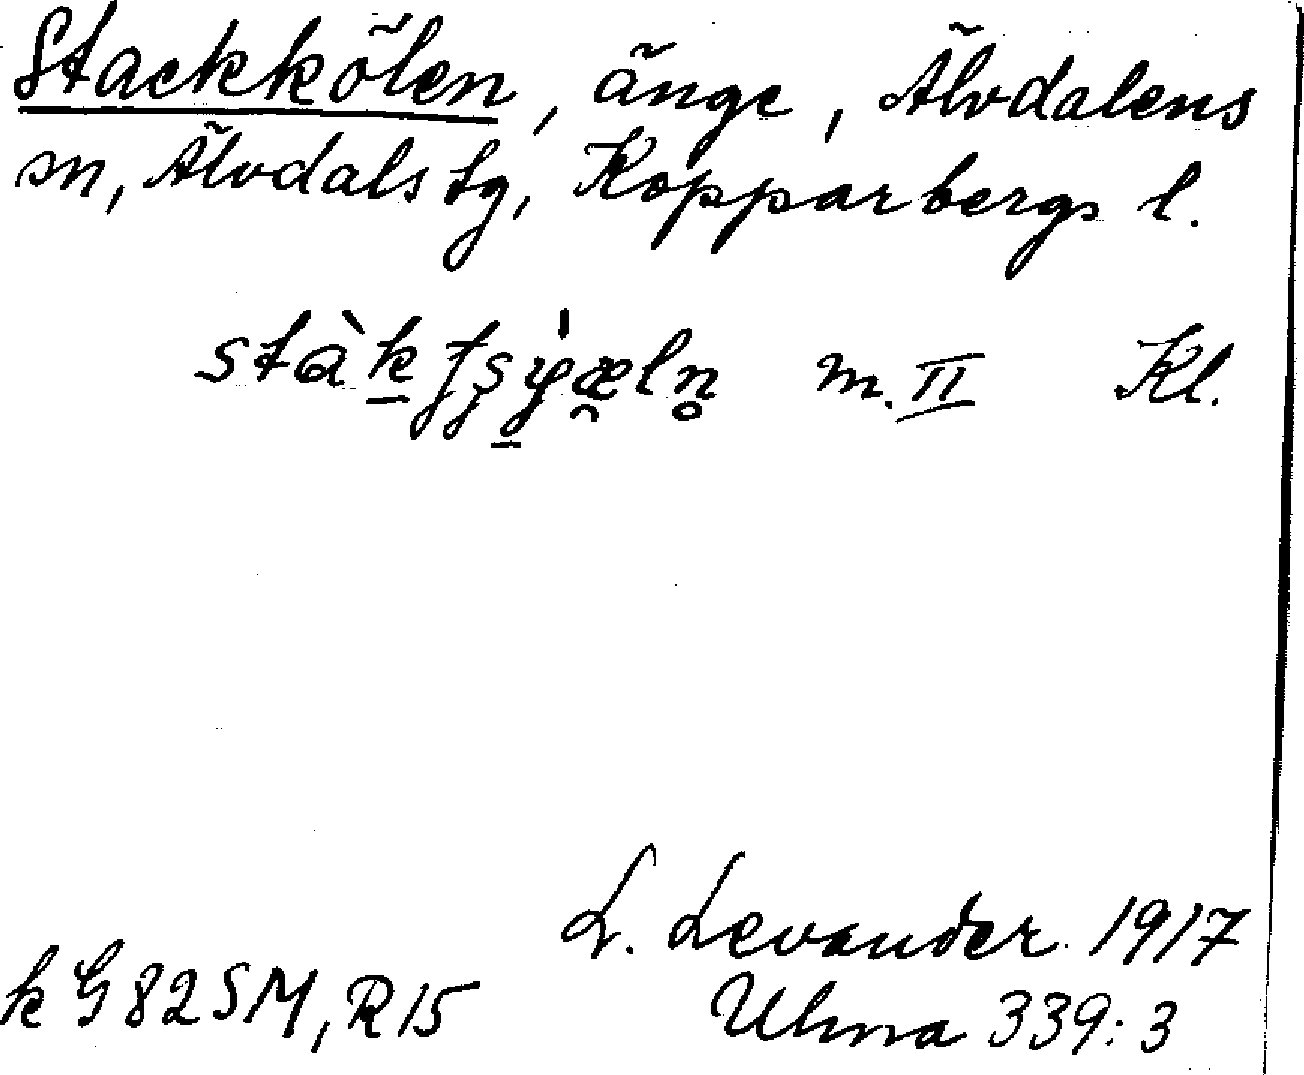 Stackkölen, änge, Älvdalens
sn, Älvdals tg, Kopparbergs l.
m. II Kl.
L. Levander 1917
k G 82 SM, R 15 Ulma 339:3